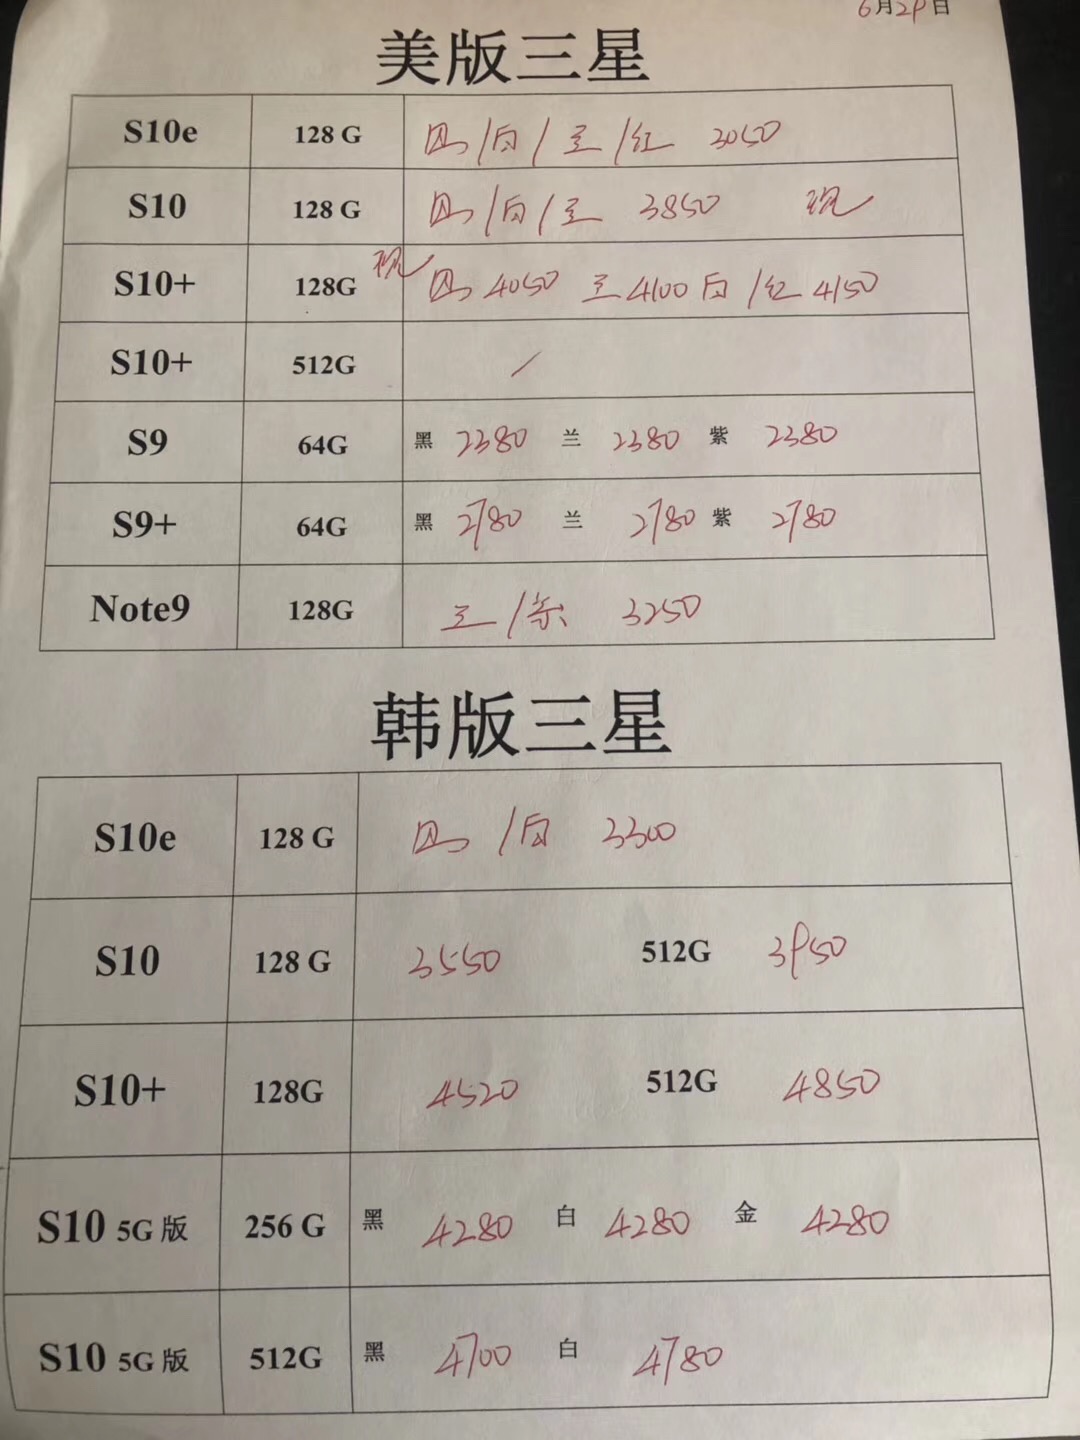 6月29日
美版三星
S10e 128 G 黑/白/兰/红 3050
S10 128 G 黑/白/兰 3850 现
S10+ 128G 现 黑 4050 兰 4100 白/红 4150
S10+ 512G /
S9 64G 黑 2380 兰 2380 紫 2380
S9+ 64G 黑 2780 兰 2780 紫 2780
Note9 128G 兰/紫 3250
韩版三星
S10e 128 G 黑/白 3300
S10 128 G 3550 512G 3950
S10+ 128G 4520 512G 4850
S10 5G 版 256 G 黑 4280 白 4280 金 4280
S10 5G 版 512G 黑 4700 白 4780